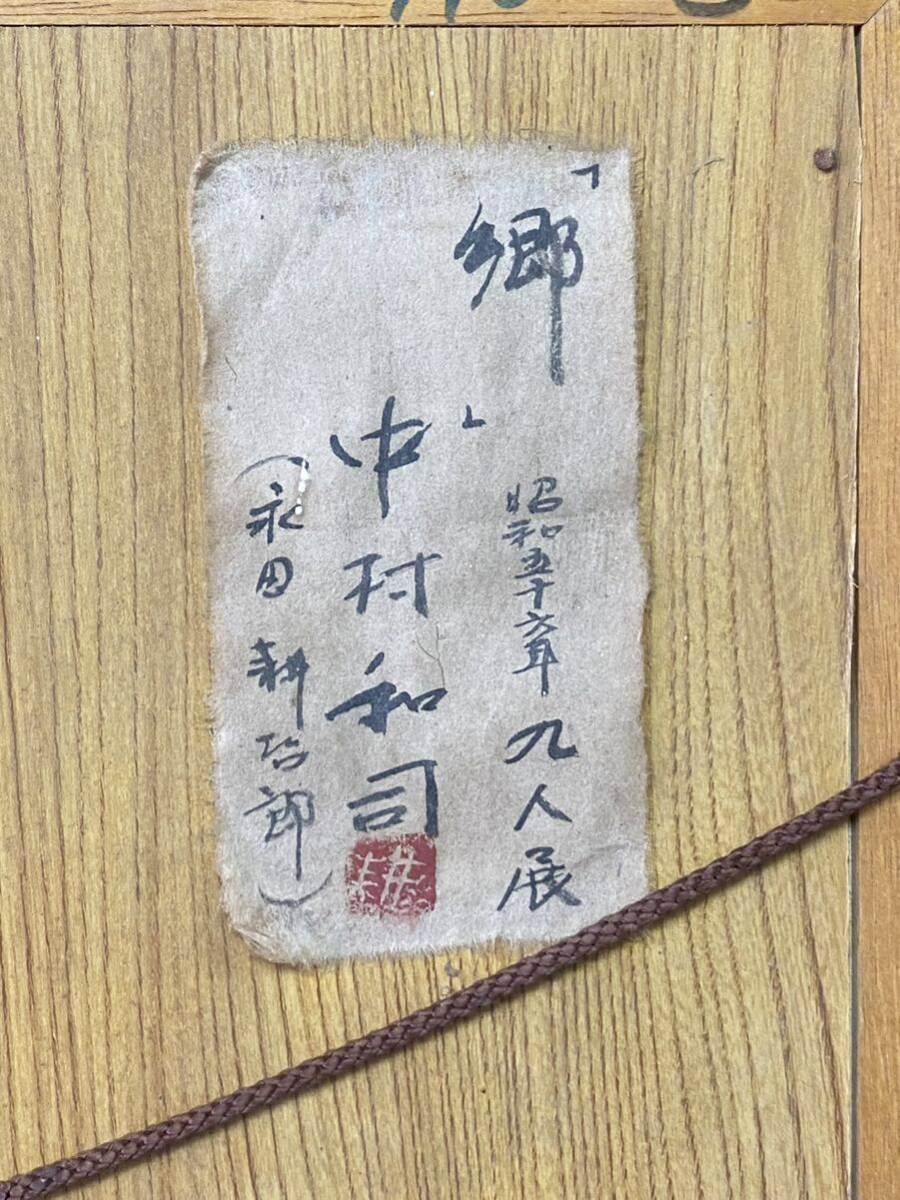 「郷」
昭和五十六年 九人展
中村和司
耕
(永田 耕治郎)